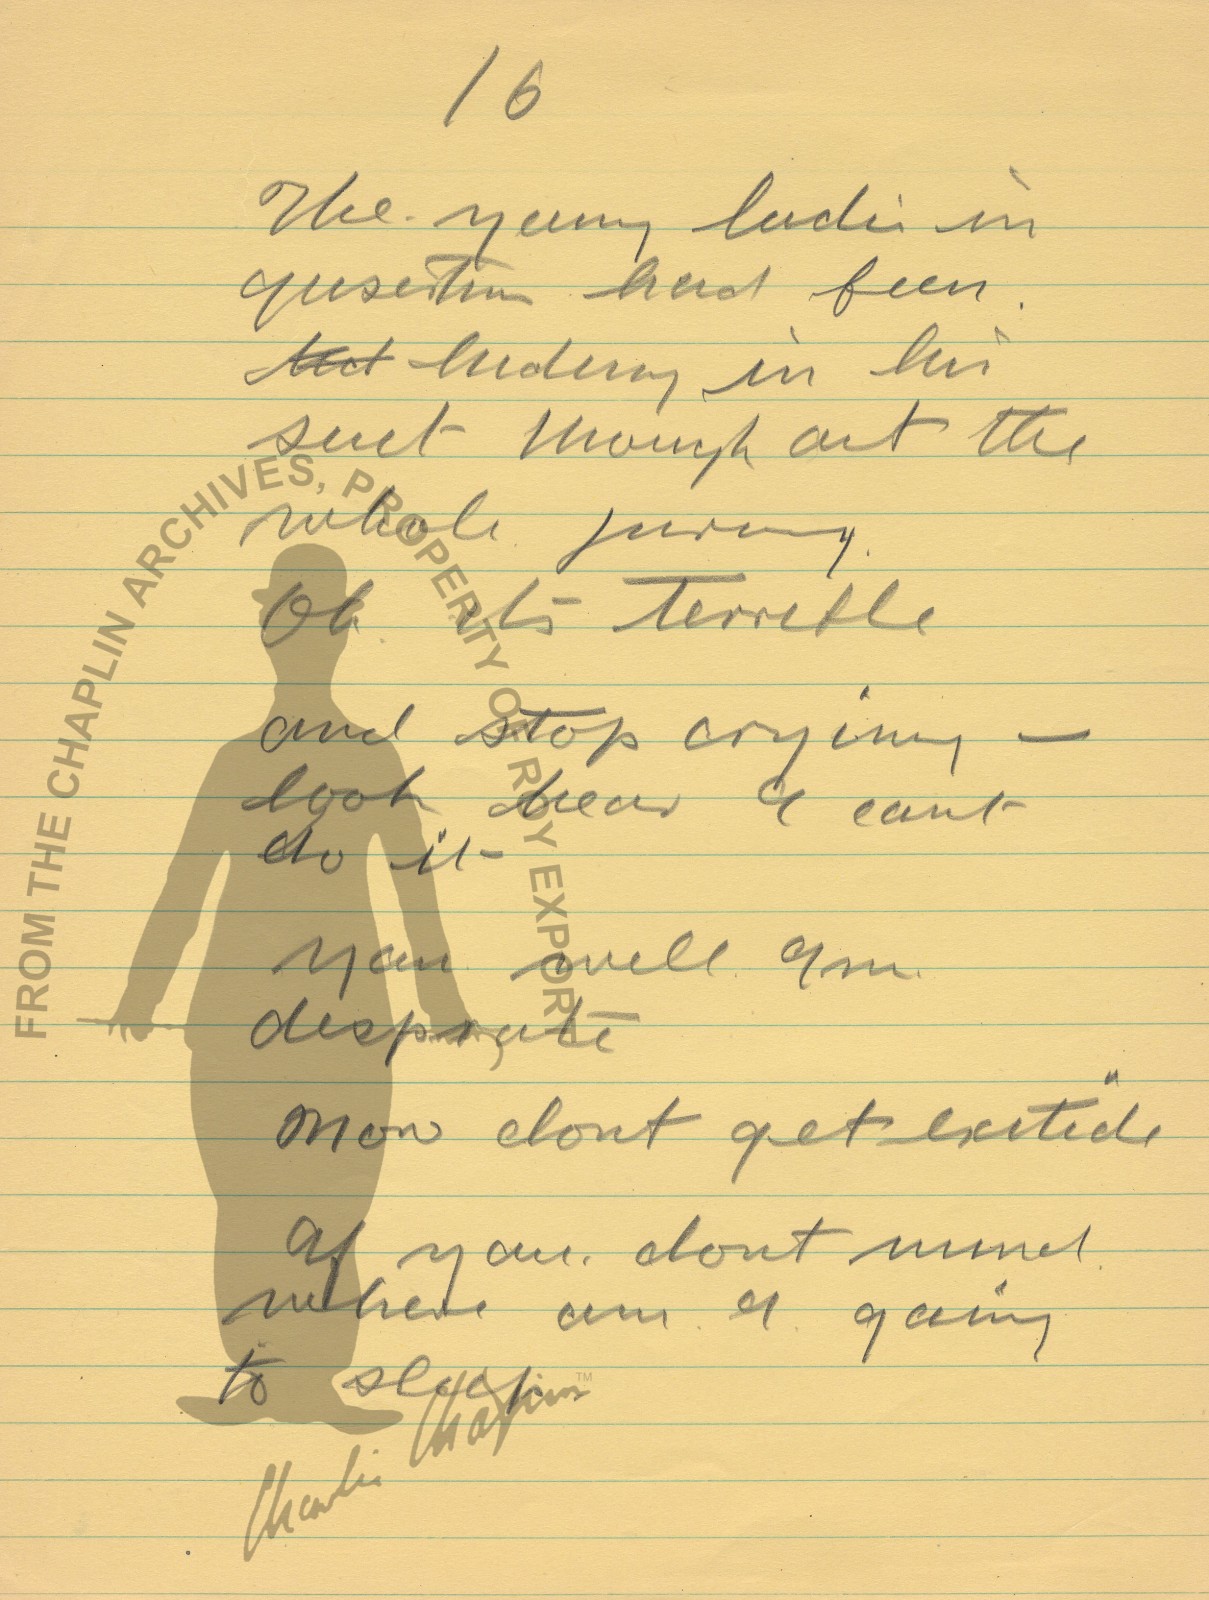 16
The young ladie in
quseition had been
hideing in his
suit through out the
whole jurny.
Oh its terrible
and stop cryinng —
look hear I cant
do it
you well I'm
desprate
now dont get exitide
If you dont mind
where am I going
to sleep
FROM THE CHAPLIN ARCHIVES, PROPERTY OF ROY EXPORT
Charlie Chaplin ™